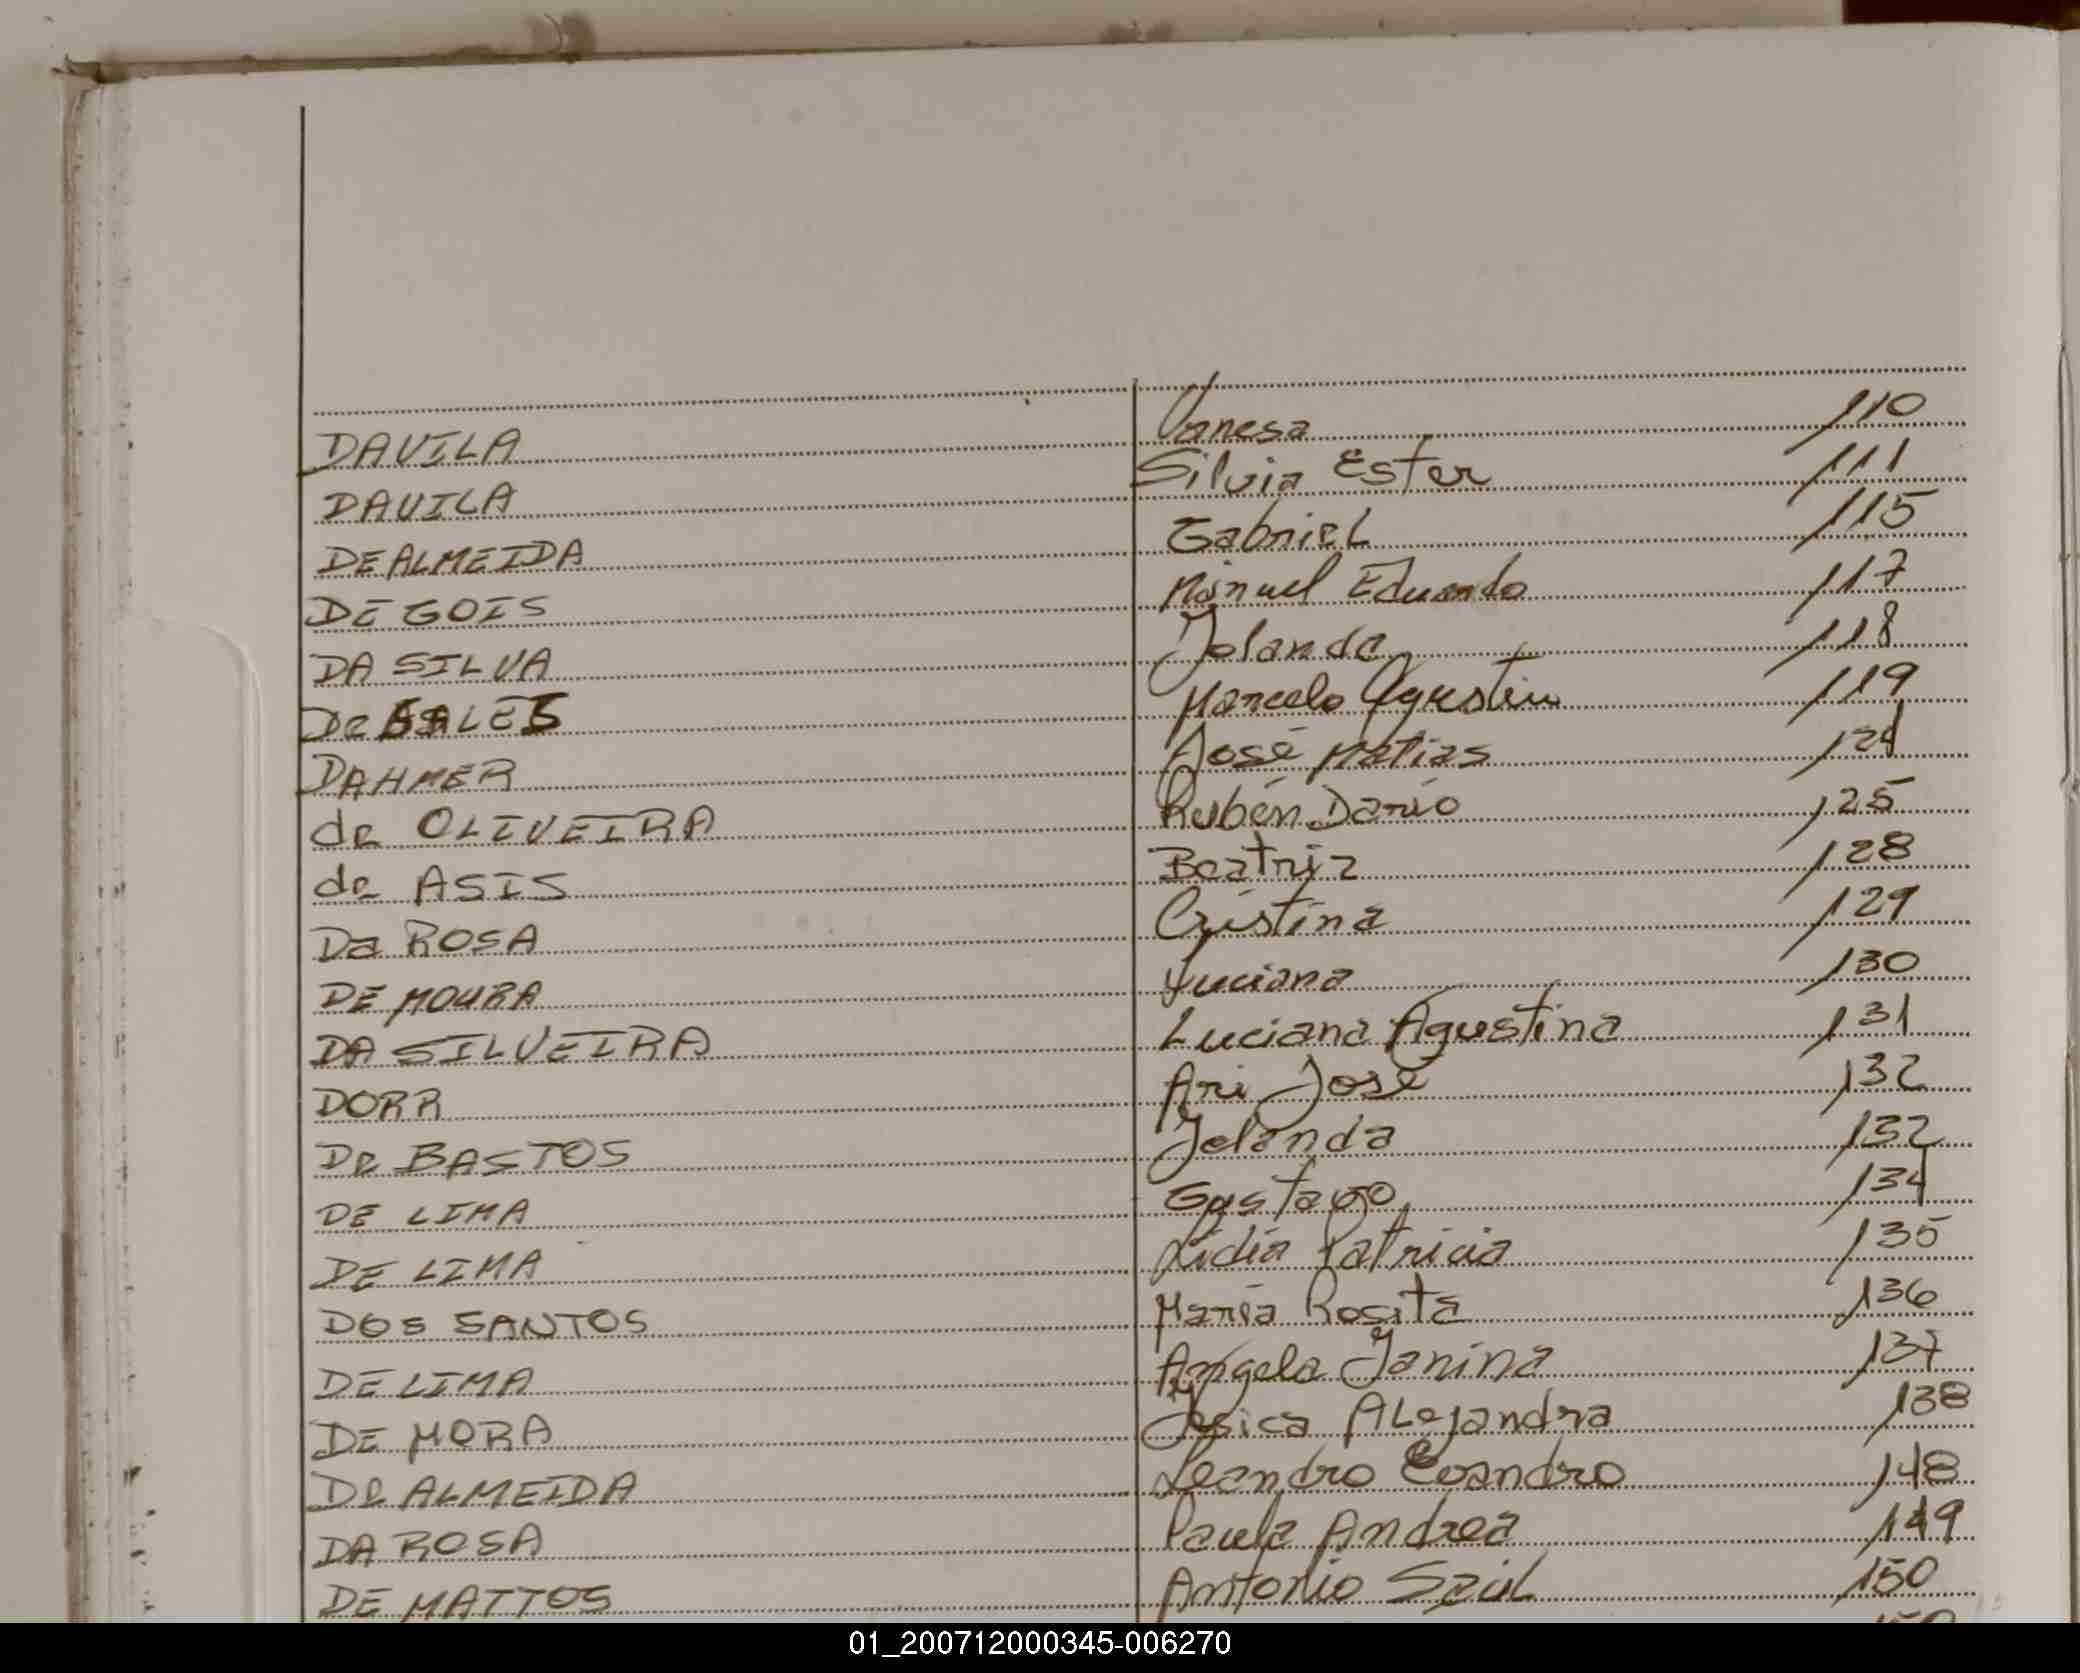 DAVILA Vanesa 110
DAVILA Silvia Ester 111
DE ALMEIDA Gabriel 115
DE GOIS Manuel Eduardo 117
DA SILVA Jolanda 118
De SALES Marcelo Agustin 119
DAHMER José Matias 124
de OLIVEIRA Rubén Dario 125
de ASIS Beatriz 128
Da ROSA Cristina 129
DE MOURA Luciana 130
DA SILVEIRA Luciana Agustina 131
DORR Ari José 132
De BASTOS Jolanda 132
DE LIMA Gustavo 134
DE LIMA Lidia Patricia 135
DOS SANTOS Maria Rosita 136
DE LIMA Angela Janina 137
DE MORA Jesica ALejandra 138
De ALMEIDA Leandro Evandro 148
DA ROSA Paula Andrea 149
DE MATTOS Antonio Saúl 150
01_200712000345-006270